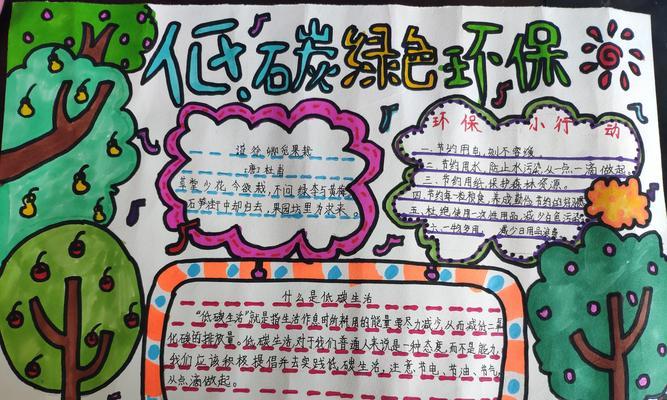 低碳绿色环保
诣徐卿觅果栽
[唐]杜甫
草堂少花今欲栽，不问绿李与黄梅。
石笋街中却归去，果园坊里为求来。
环保小行动
一、节约用电，别不变暖
二、节约用水，防止水污染，从一点一滴做起。
三、节约用纸，保护森林资源。
四、节约每一粒粮食，养成勤俭节约的生活习惯
五、杜绝使用一次性用品，减少白色污染
六、一物多用，减少日用品浪费
什么是低碳生活
“低碳生活”就是指生活作息时所耗用的能量要尽力减少，从而减低二氧
化碳的排放量。低碳生活，对于我们普通人来说是一种态度，而不是能力，
我们应该积极提倡并去实践低碳生活，注意节电、节油、节气，
从点滴做起。